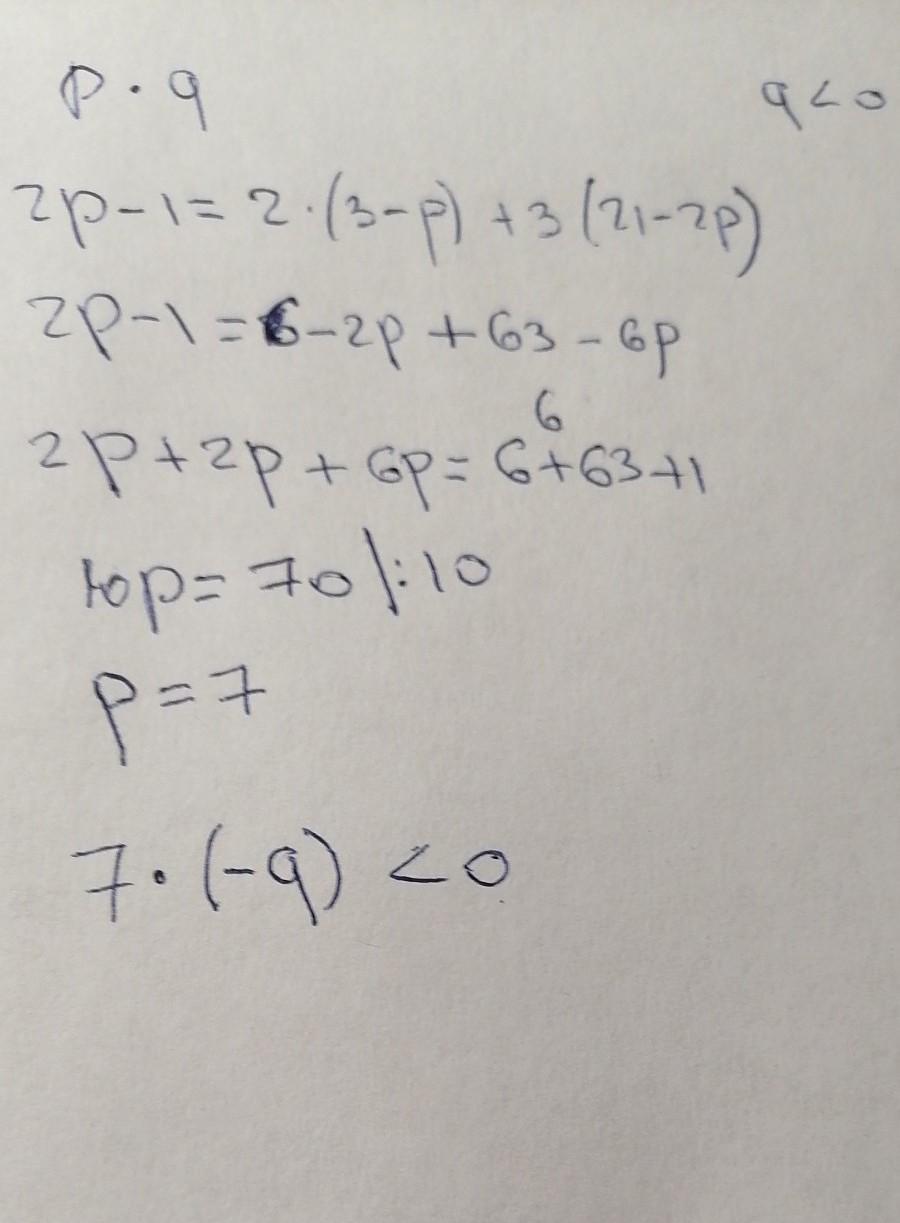 p · q q < 0
2p - 1 = 2 · (3 - p) + 3 (21 - 2p)
2p - 1 = 6 - 2p + 63 - 6p
6
2p + 2p + 6p = 6 + 63 + 1
10p = 70 |: 10
p = 7
7 · (-q) < 0